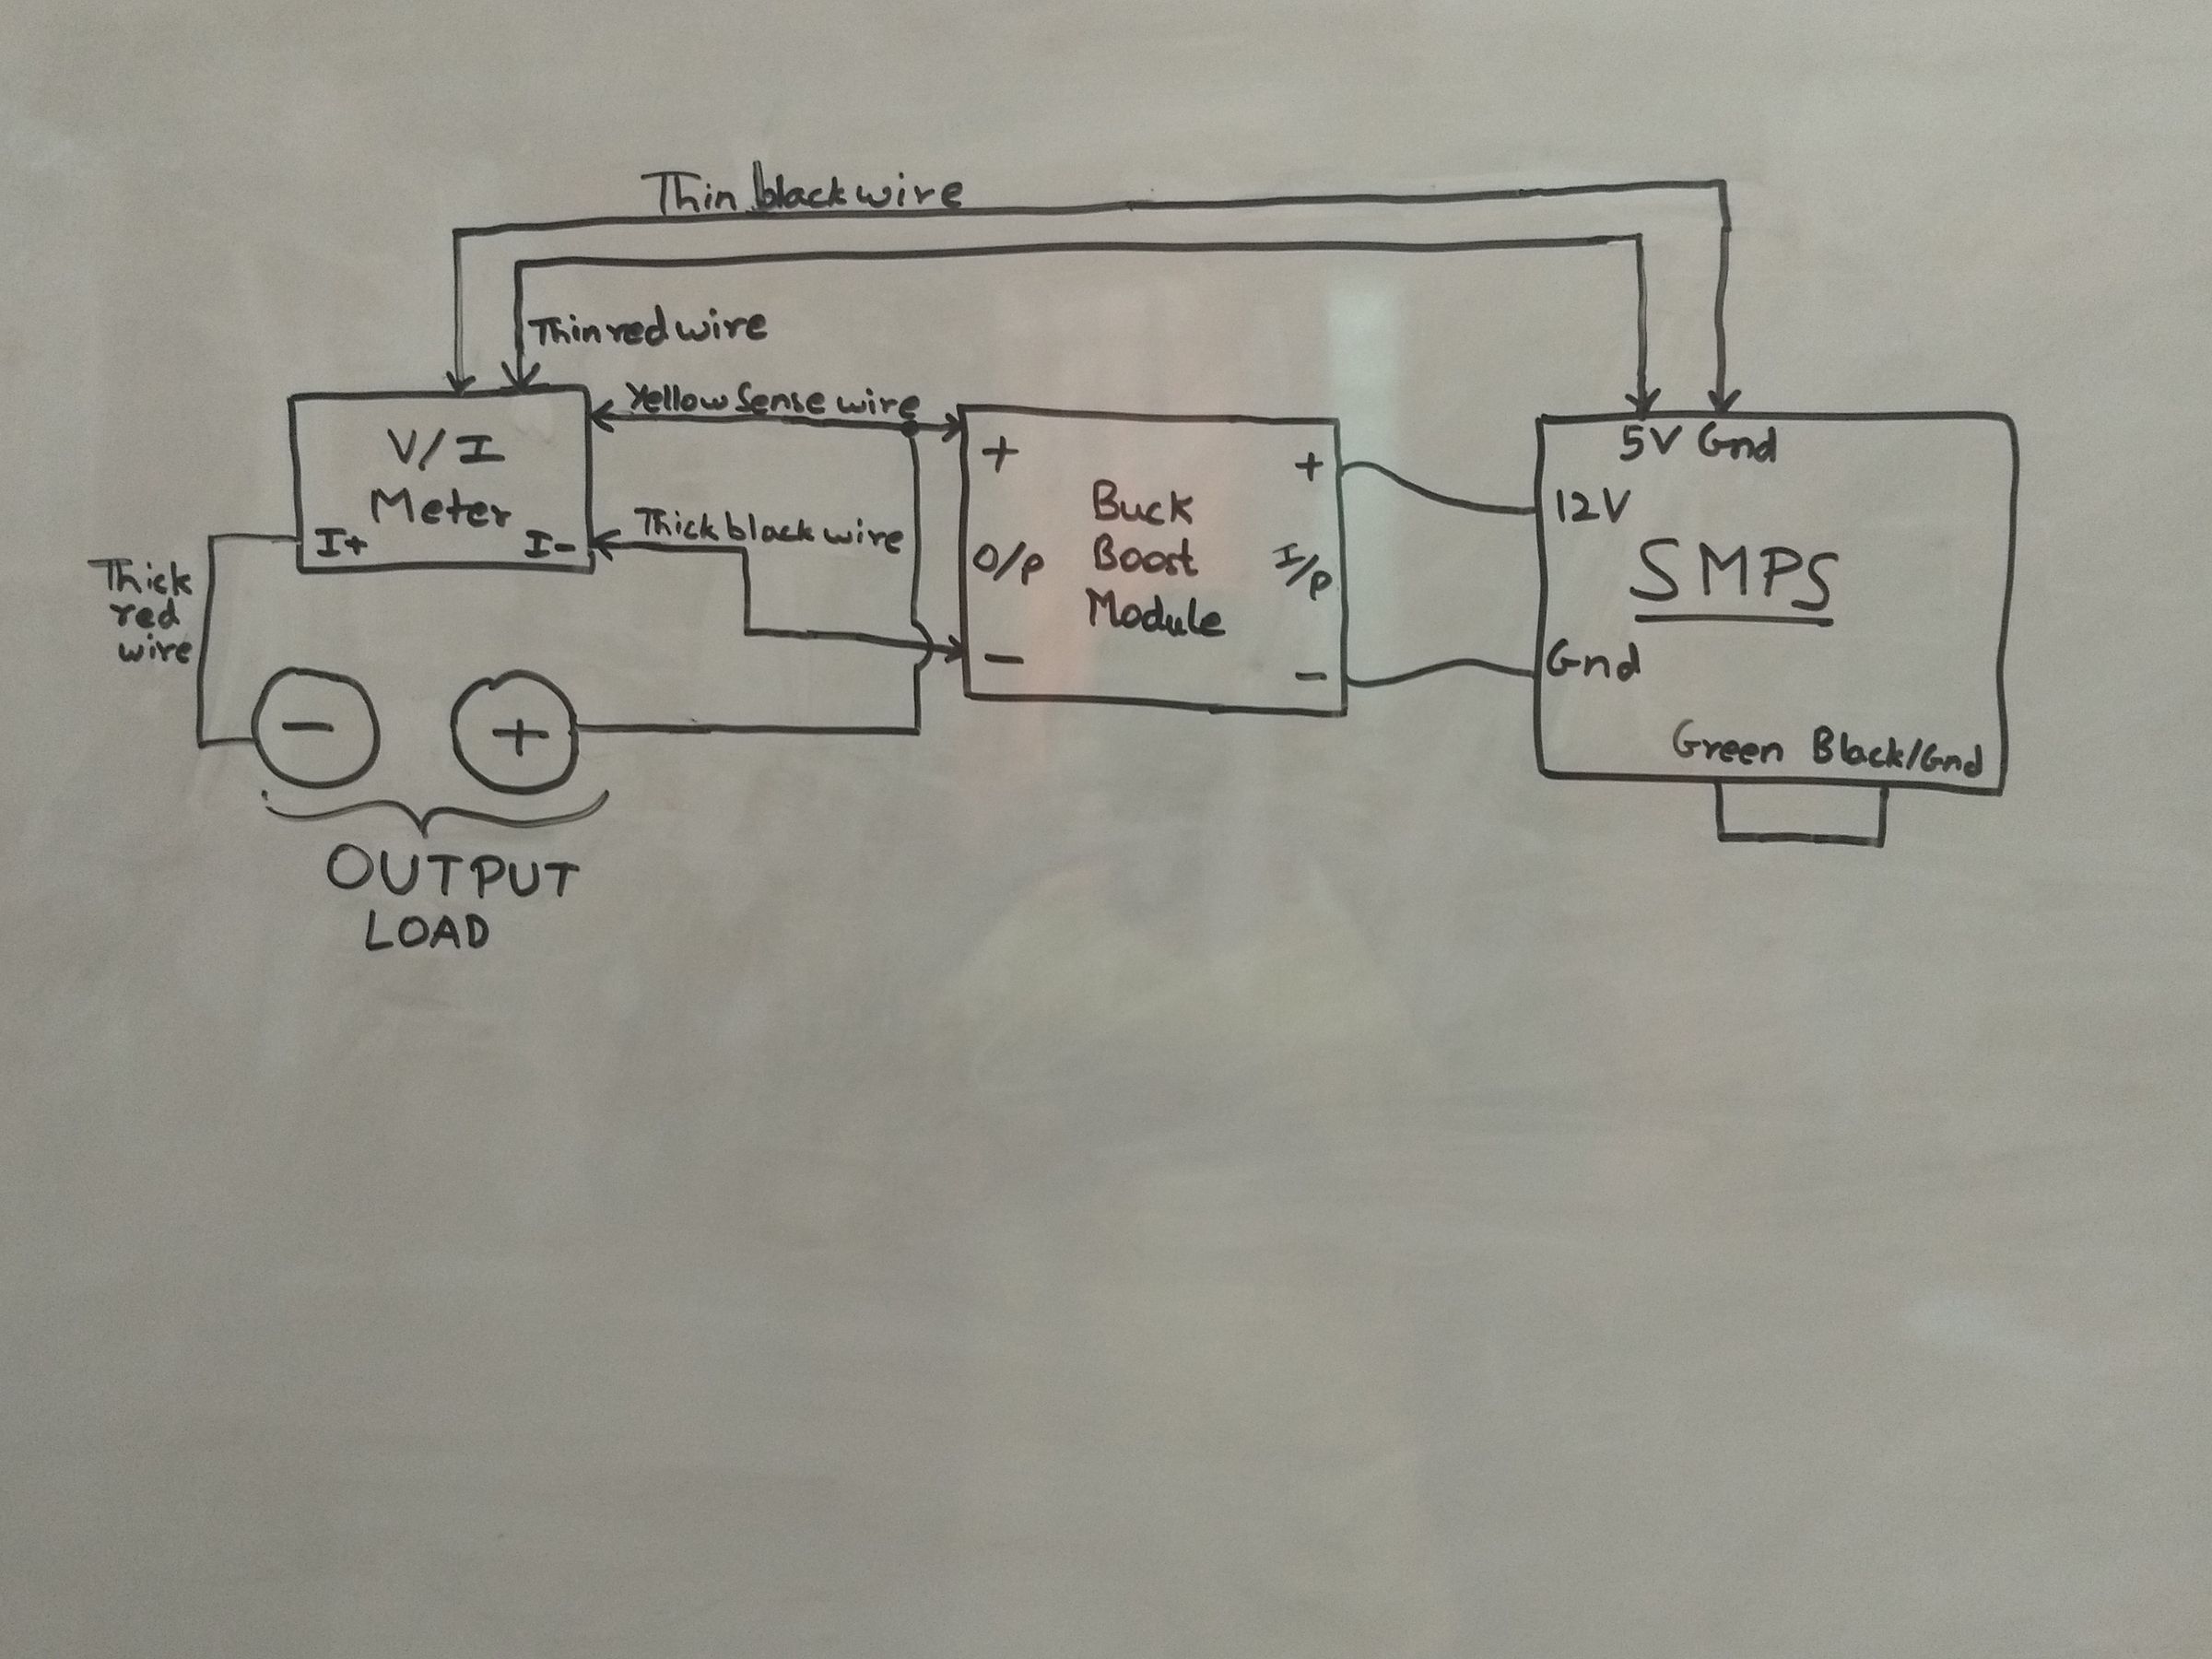 Thin black wire
Thin red wire
Yellow Sense wire
V/I
Meter
I+ I-
Thick black wire
Thick
red
wire
- +
OUTPUT
LOAD
+ +
Buck
Boost
Module
O/P I/P
- -
5V Gnd
12V
SMPS
Gnd
Green Black/Gnd